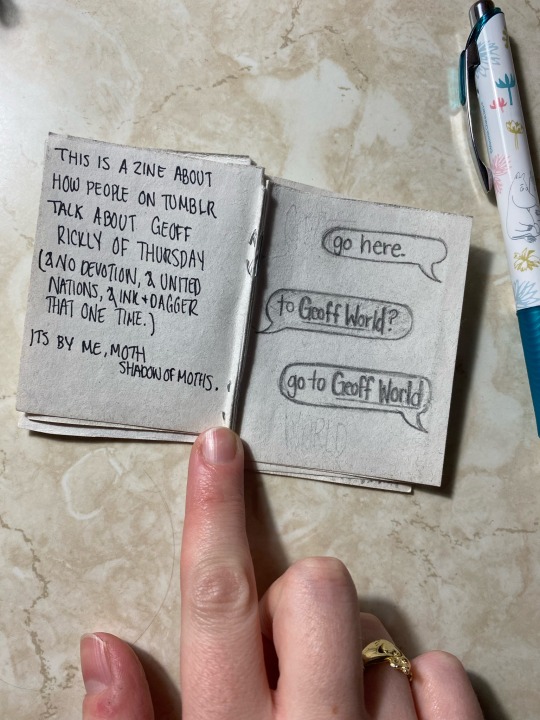 THIS IS A ZINE ABOUT
HOW PEOPLE ON TUMBLR
TALK ABOUT GEOFF
RICKLY OF THURSDAY
(& NO DEVOTION, & UNITED
NATIONS, & INK + DAGGER
THAT ONE TIME.)
ITS BY ME, MOTH
SHADOWOFMOTHS.
go here.
to Geoff World?
go to Geoff World
WORLD